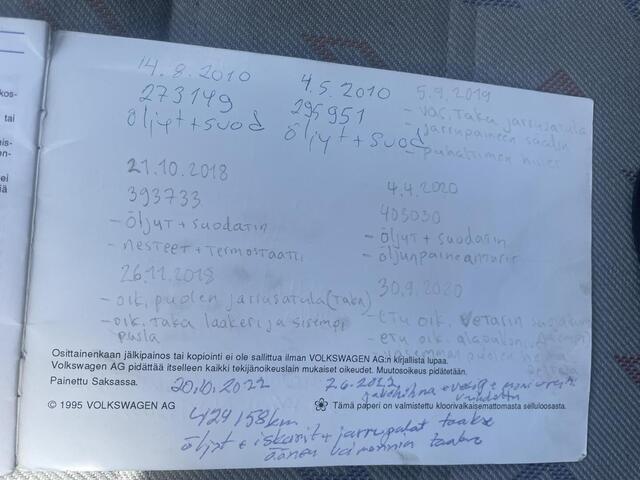 14.8.2010
273149
Öljyt + suod
4.5.2010
295951
Öljyt + suod
5.9.2019
- vas. taka jarrusatula
- jarrupaineen säädin
- puhaltimen hiilet
21.10.2018
393733
- öljyt + suodatin
- nesteet + termostaatti
26.11.2018
- oik. puolen jarrusatula (taka)
- oik. taka laakeri ja sisempi
pusla
4.4.2020
403030
- öljyt + suodatin
- öljynpaineanturit
30.9.2020
- etu oik. vetarin
- etu oik. alapallonivel
kos-
tai
mis-
en-
ei
iä
Osittainenkaan jälkipainos tai kopiointi ei ole sallittua ilman VOLKSWAGEN AG:n kirjallista lupaa.
Volkswagen AG pidättää itselleen kaikki tekijänoikeuslain mukaiset oikeudet. Muutosoikeus pidätetään.
Painettu Saksassa.
© 1995 VOLKSWAGEN AG
Tämä paperi on valmistettu kloorivalkaisemattomasta selluloosasta.
20.10.2022
424158km
öljyt + iskarit + jarrupalat taakse
äänen vaimennin taakse
2.6.2022
vaihdettu